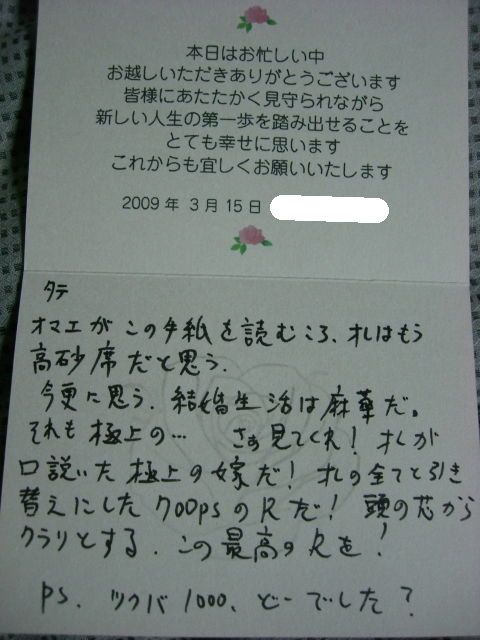 本日はお忙しい中
お越しいただきありがとうございます
皆様にあたたかく見守られながら
新しい人生の第一歩を踏み出せることを
とても幸せに思います
これからも宜しくお願いいたします
2009年 3月15日
タテ
オマエがこの手紙を読むころ、オレはもう
高砂席だと思う.
今更に思う. 結婚生活は麻雀だ。
それも極上の… さぁ見てくれ! オレが
口説いた極上の嫁だ! オレの全てと引き
替えにした 700psのRだ! 頭の芯から
クラリとする. この最高のRを!
PS. ツクバ1000、どーでした?